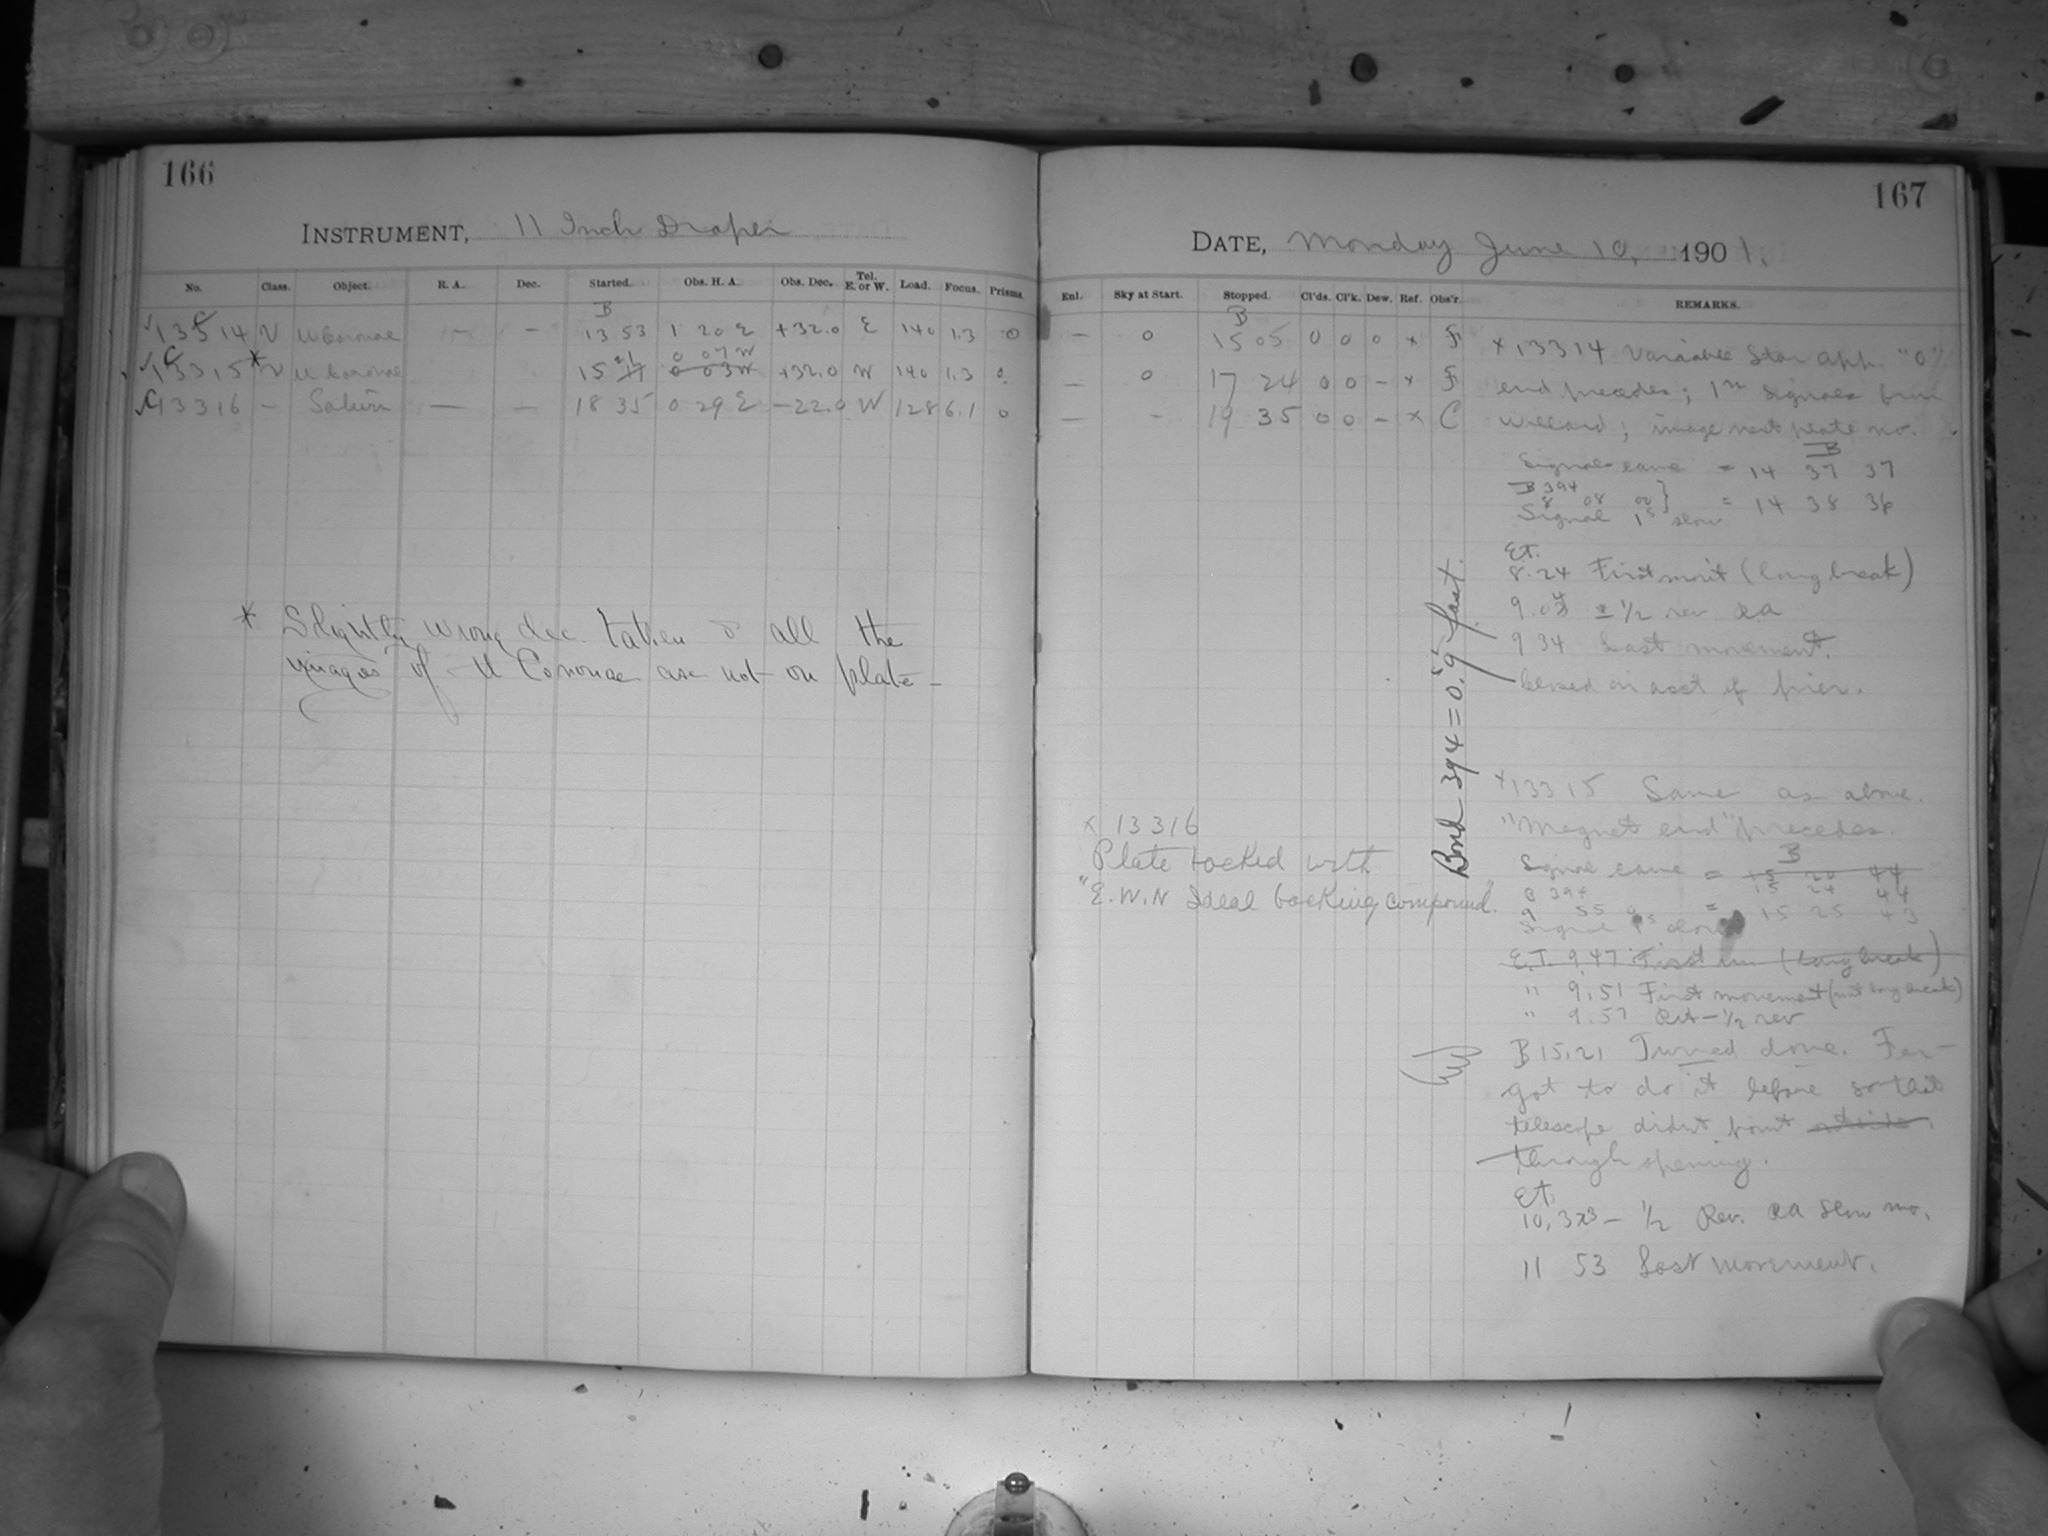 166
INSTRUMENT, 11 Inch Draper
No. Class. Object. R. A. Dec. Started. Obs. H. A. Obs. Dec. Tel. E. or W. Load. Focus. Prisms.
B
13314 V U Coronae — — 13 53 1 20 E +32.0 E 140 1.3 0
0 07 W
C 13315 * V U Coronae 15 21 17 0 03 W +32.0 W 140 1.3 0
C 13316 — Saturn — — 18 35 0 29 E —22.0 W 128 6.1 0
* Slightly wrong dec. taken & all the
images of U Coronae are not on plate —
167
DATE, Monday June 10, 1901.
Enl. Sky at Start. Stopped. Cl'ds. Cl'k. Dew. Ref. Obs'r. REMARKS.
B
— 0 15 05 0 0 0 x F
— 0 17 24 0 0 — x F
— — 19 35 0 0 — x C
x 13314 Variable Star app. "0"
end precedes; 1m signals from
Willard; image next plate no.
B
Signal came = 14 37 37
B 394
8 08 00 } = 14 38 36
Signal 1s slow
E.T.
8.24 First mov't (long break)
9.04 ± 1/2 rev RA
9 34 Last movement.
Closed on acct of
Bond 394 = 0.s9 fast.
x 13315 Same as above.
"Magnet end" precedes.
B
Signal came = 15 20 44
15 24 44
B 394
9 55 = 15 25 43
Signal slow
E.T. 9.47 First m (Long break)
" 9.51 First movement (not long break)
" 9.57 RA — 1/2 rev
B 15.21 Turned dome. For-
got to do it before so that
telescope didn't point outside
through opening.
E.T.
10.33 — 1/2 Rev. RA slow mo.
11 53 Last movement.
x 13316
Plate backed with
"E.W.N Ideal backing compound."